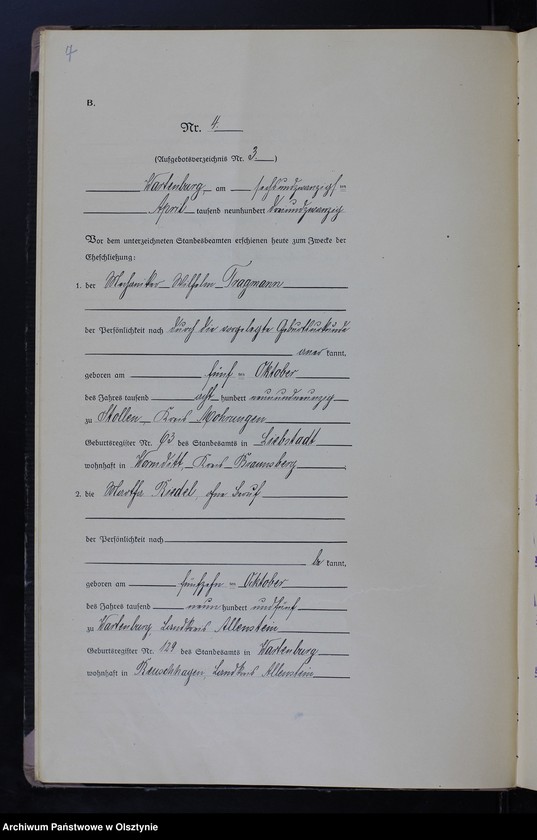 4
B.
Nr. 4.
(Aufgebotsverzeichnis Nr. 3.)
Wartenburg, am sechsundzwanzigsten
April tausend neunhundert dreiundzwanzig.
Vor dem unterzeichneten Standesbeamten erschienen heute zum Zwecke der
Eheschließung:
1. der Mechaniker Wilhelm Tragmann
der Persönlichkeit nach durch die vorgelegte Geburtsurkunde
aner kannt,
geboren am fünf ten Oktober
des Jahres tausend acht hundert neunundneunzig
zu Stollen, Kreis Mohrungen
Geburtsregister Nr. 63 des Standesamts in Liebstadt
wohnhaft in Wormditt, Kreis Braunsberg.
2. die Martha Riedel, ohne Beruf
der Persönlichkeit nach
be kannt,
geboren am fünfzehn ten Oktober
des Jahres tausend neun hundert und fünf
zu Wartenburg, Landkreis Allenstein
Geburtsregister Nr. 129 des Standesamts in Wartenburg
wohnhaft in Reuschhagen, Landkreis Allenstein
Archiwum Państwowe w Olsztynie